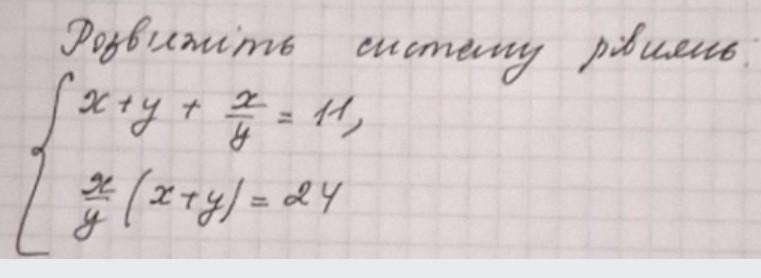 Розвяжіть систему рівнянь:
x + y + x/y = 11,
x/y (x + y) = 24